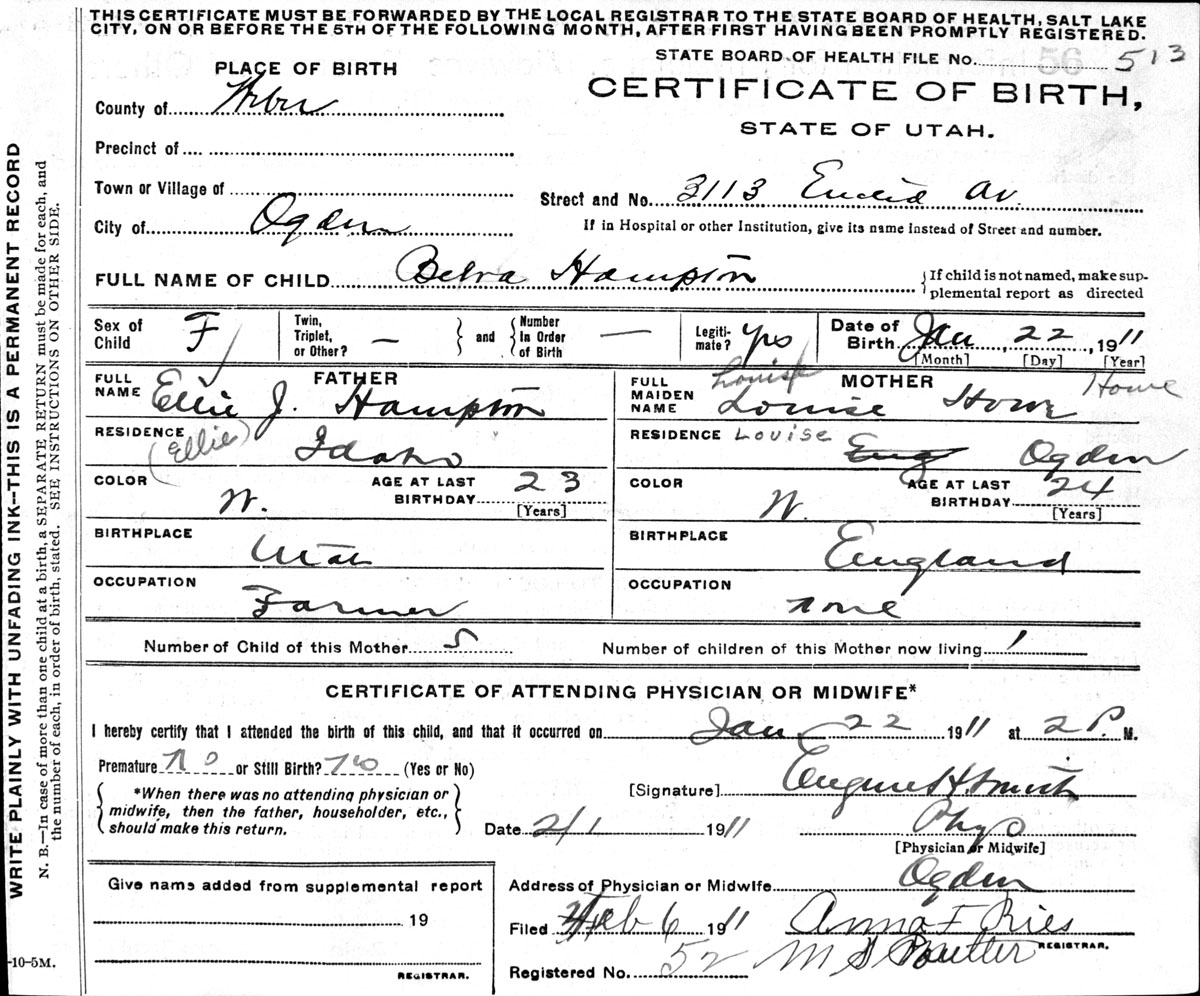 THIS CERTIFICATE MUST BE FORWARDED BY THE LOCAL REGISTRAR TO THE STATE BOARD OF HEALTH, SALT LAKE
CITY, ON OR BEFORE THE 5TH OF THE FOLLOWING MONTH, AFTER FIRST HAVING BEEN PROMPTLY REGISTERED.
STATE BOARD OF HEALTH FILE No. 56 513
PLACE OF BIRTH
CERTIFICATE OF BIRTH,
STATE OF UTAH.
County of Weber
Precinct of
Town or Village of
Street and No. 3113 Euclid Av.
City of Ogden
If in Hospital or other Institution, give its name instead of Street and number.
FULL NAME OF CHILD Belva Hampton
{If child is not named, make sup-
plemental report as directed
Sex of Child F
Twin, Triplet, or Other? — } and { Number In Order of Birth —
Legiti-mate? yes
Date of Birth Jan 22, 1911
[Month] [Day] [Year]
FATHER
FULL NAME Ellie J. Hampton
RESIDENCE (Ellie) Idaho
COLOR W. AGE AT LAST BIRTHDAY 23
[Years]
BIRTHPLACE Utah
OCCUPATION Farmer
MOTHER
Louise Howe
FULL MAIDEN NAME Louise Howe
RESIDENCE Louise Eng Ogden
COLOR W. AGE AT LAST BIRTHDAY 24
[Years]
BIRTHPLACE England
OCCUPATION none
Number of Child of this Mother 5 Number of children of this Mother now living 1
CERTIFICATE OF ATTENDING PHYSICIAN OR MIDWIFE*
I hereby certify that I attended the birth of this child, and that it occurred on Jan 22 1911 at 2 P. M.
Premature No or Still Birth? No (Yes or No)
{*When there was no attending physician or
midwife, then the father, householder, etc.,
should make this return.}
[Signature] Eugene H. Smith
Date 2/1 1911 Phys
[Physician or Midwife]
Give name added from supplemental report
19
REGISTRAR.
Address of Physician or Midwife Ogden
Filed Feb 6 1911 Anna F Ries
REGISTRAR.
Registered No. 52 M S
WRITE PLAINLY WITH UNFADING INK--THIS IS A PERMANENT RECORD
N. B.—In case of more than one child at a birth, a SEPARATE RETURN must be made for each, and
the number of each, in order of birth, stated. SEE INSTRUCTIONS ON OTHER SIDE.
-10-5M.